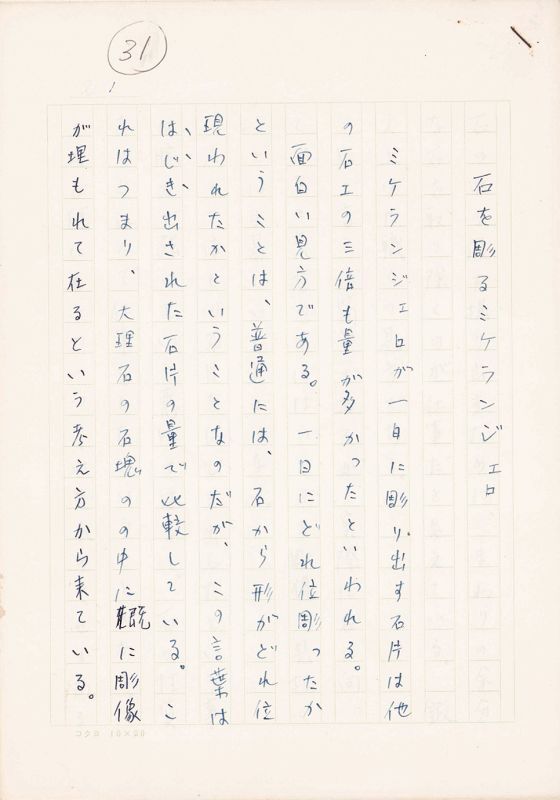 31
石を彫るミケランジェロ
ミケランジェロが一日に彫り出す石片は他
の石工の三倍も量が多かったといわれる。
面白い見方である。一日にどれ位彫ったか
ということは、普通には、石から形がどれ位
現われたかということなのだが、この言葉は
はじき出された石片の量で比較している。こ
れはつまり、大理石の石塊のの中に既に彫像
が埋もれて在るという考え方から来ている。
コクヨ 10×20